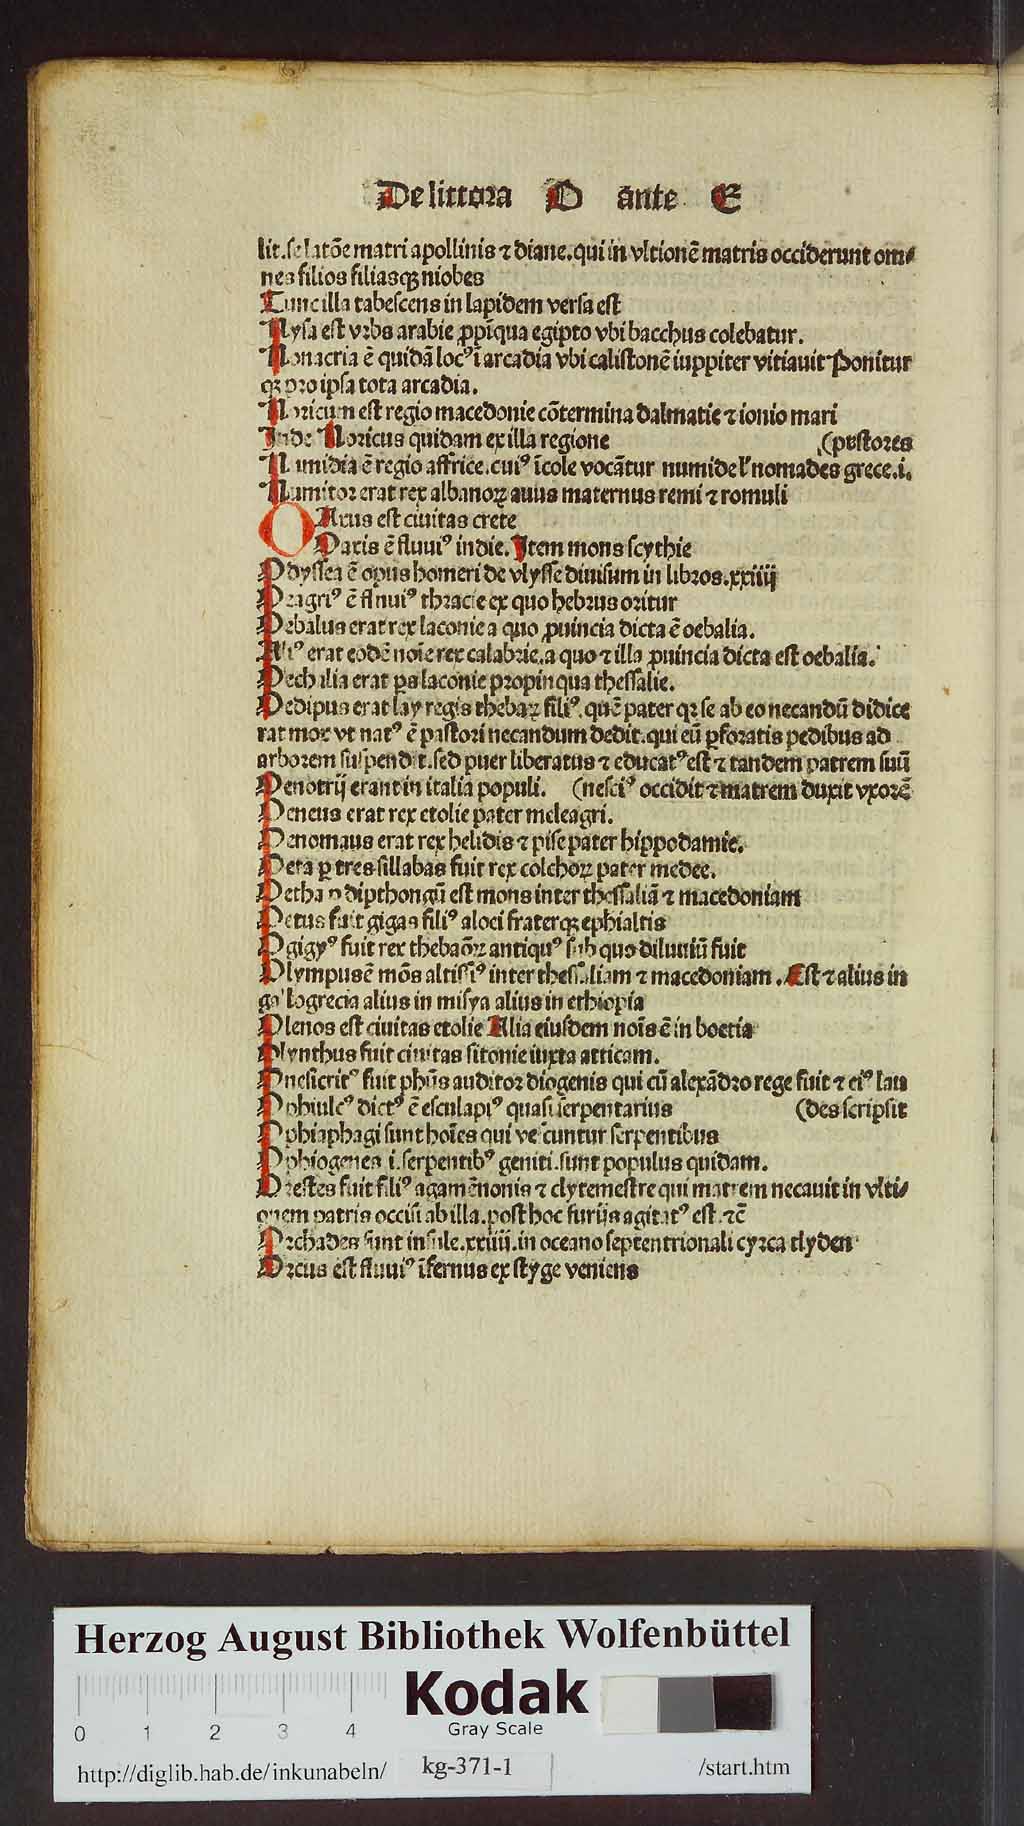 De littora O ante E
lit. se latōe matri apollinis ⁊ diane. qui in vltionē matris occiderunt om⸗
nes filios filiasqꝫ niobes
Tunc illa tabescens in lapidem versa est
Nysa est vrbs arabie ꝓpīqua egipto vbi bacchus colebatur.
Nonacria ē quidā locꝰ ī arcadia vbi calistonē iuppiter vitiauit Ponitur
qꝫ pro ipsa tota arcadia.
Noricum est regio macedonie cōtermina dalmatie ⁊ ionio mari
Inde Noricus quidam ex illa regione (pastores
Numidia ē regio affrice. cuiꝰ īcole vocātur numide lʼ nomades grece .i.
Numitor erat rex albanoꝝ auus maternus remi ⁊ romuli
OAxus est ciuitas crete
Oaxis ē fluuiꝰ indie. Item mons scythie
Odyssea ē opus homeri de vlysse diuisum in libros .xxiiij
Oeagriꝰ ē flnuiꝰ thracie ex quo hebrus oritur
Oebalus erat rex laconie a quo ꝓuincia dicta ē oebalia.
Aliꝰ erat eodē noīe rex calabrie. a quo ⁊ illa ꝓuincia dicta est oebalia.
Oechalia erat ꝑs laconie propinqua thessalie.
Oedipus erat lay regis thebaꝝ filiꝰ. quē pater qꝛ se ab eo necandū didice
rat mox vt natꝰ ē pastori necandum dedit. qui eū ꝑforatis pedibus ad
arborem suspendit. sed puer liberatus ⁊ educatꝰ est ⁊ tandem patrem suū
Oenotrij erant in italia populi. (nesciꝰ occidit ⁊ matrem duxit vxorē
Oeneus erat rex etolie pater meleagri.
Oenomaus erat rex helidis ⁊ pise pater hippodamie.
Oeta ꝑ tres sillabas fuit rex colchoꝝ pater medee.
Oetha ꝑ dipthongū est mons inter thessaliā ⁊ macedoniam
Oetus fuit gigas filiꝰ aloei fraterqꝫ ephialtis
Ogigyꝰ fuit rex thebaōꝝ antiquꝰ sub quo diluuiū fuit
Olympus ē mōs altissiꝰ inter thessaliam ⁊ macedoniam. Est ⁊ alius in
gallogrecia alius in misya alius in ethiopia
Olenos est ciuitas etolie Alia eiusdem noīs ē in boetia
Olynthus fuit ciuitas sitonie iuxta atticam.
Onesicritꝰ fuit phūs auditor diogenis qui cū alexādro rege fuit ⁊ eiꝰ lau
Ophiulcꝰ dictꝰ ē esculapiꝰ quasi serpentarius (des scripsit
Ophiaphagi sunt hoīes qui vescuntur serpentibus
Ophiogenes .i. serpentibꝰ geniti. sunt populus quidam.
Orestes fuit filiꝰ agamēnonis ⁊ clytemestre qui matrem necauit in vlti⸗
onem patris occisi ab illa. post hoc furijs agitatꝰ est. ⁊cē
Orchades sunt insule .xxiiii. in oceano septentrionali cyrca tlyden
Orcus est fluuiꝰ īfernus ex styge veniens
Herzog August Bibliothek Wolfenbüttel
Kodak
Gray Scale
0 1 2 3 4
http://diglib.hab.de/inkunabeln/ kg-371-1 /start.htm